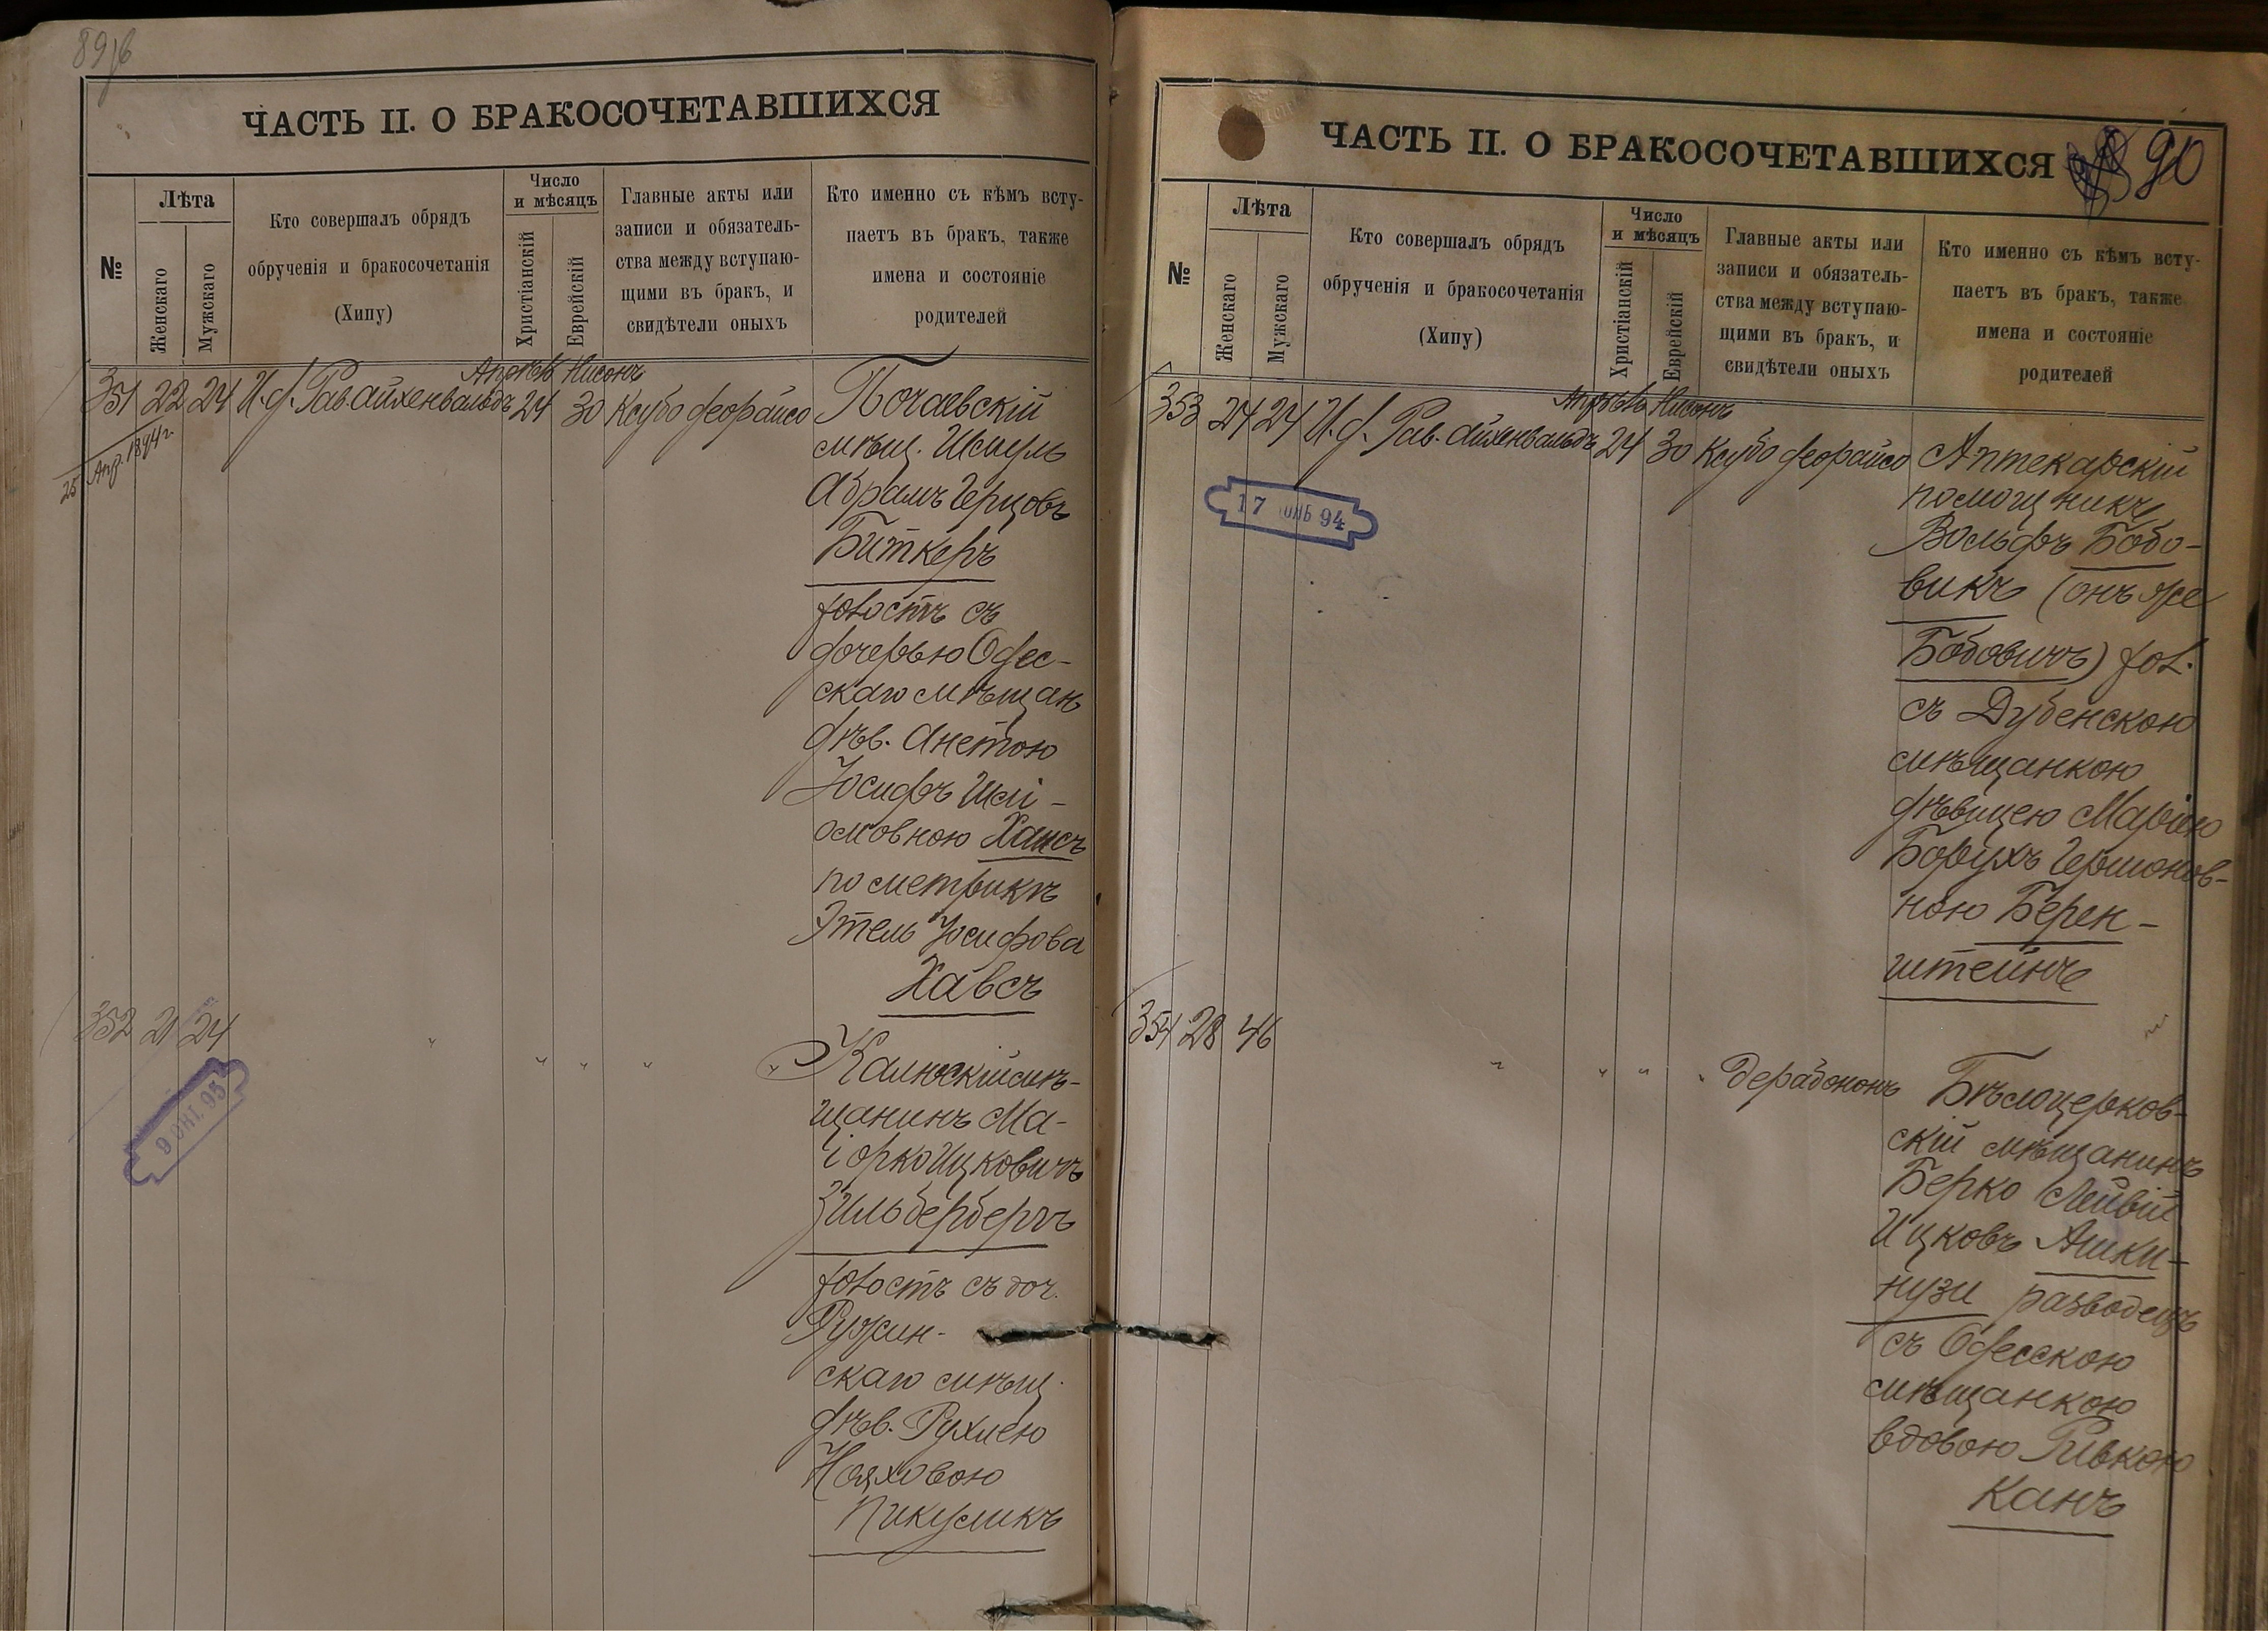 89/6
ЧАСТЬ II. О БРАКОСОЧЕТАВШИХСЯ
№
Лѣта
Женскаго
Мужскаго
Кто совершалъ обрядъ
обрученія и бракосочетанія
(Хипу)
Число
и мѣсяцъ
Христіанскій
Еврейскій
Главные акты или
записи и обязатель-
ства между вступаю-
щими въ бракъ, и
свидѣтели оныхъ
Кто именно съ кѣмъ всту-
паетъ въ бракъ, также
имена и состояніе
родителей
Апрѣль Нисонъ
351 22 24 И.д. Рав. Айхенвальдъ 24 30 Ксубо деорайсо Почаевскій
25 Апр. 1894 г.
мѣщ. Шмуль
Абрамъ Герцовъ
Биткеръ
холостъ съ
дочерью Одес-
скаго мѣщан
дѣв. Анетою
Іосифъ Шлі-
омовною Хаисъ
по метрикѣ
Этель Іосифова
Хавсъ
352 21 24 " " " " " Калюскій мѣ-
9 ОКТ. 95
щанинъ Ма-
іорко Ицковичъ
Зильбербергъ
холостъ съ доч.
Ружин-
скаго мѣщ.
дѣв. Рухлею
Нояховою
Пикусликъ
ЧАСТЬ II. О БРАКОСОЧЕТАВШИХСЯ
90
№
Лѣта
Женскаго
Мужскаго
Кто совершалъ обрядъ
обрученія и бракосочетанія
(Хипу)
Число
и мѣсяцъ
Христіанскій
Еврейскій
Главные акты или
записи и обязатель-
ства между вступаю-
щими въ бракъ, и
свидѣтели оныхъ
Кто именно съ кѣмъ всту-
паетъ въ бракъ, также
имена и состояніе
родителей
Апрѣль Нисонъ
353 24 24 И.д. Рав. Айхенвальдъ 24 30 Ксубо деорайсо Аптекарскій
17 94
помощникъ
Вольфъ Бобо-
викъ (онъ же
Бобовичъ) хол.
съ Дубенскою
мѣщанкою
дѣвицею Маріею
Борухъ Гершонов-
ною Берен-
штейнъ
354 28 46 " " " " дерабононъ Бѣлоцерков-
скій мѣщанинъ
Берко Лейвій
Ицковъ Ашки-
нузи разводецъ
съ Одесскою
мѣщанкою
вдовою Ривкою
Канъ